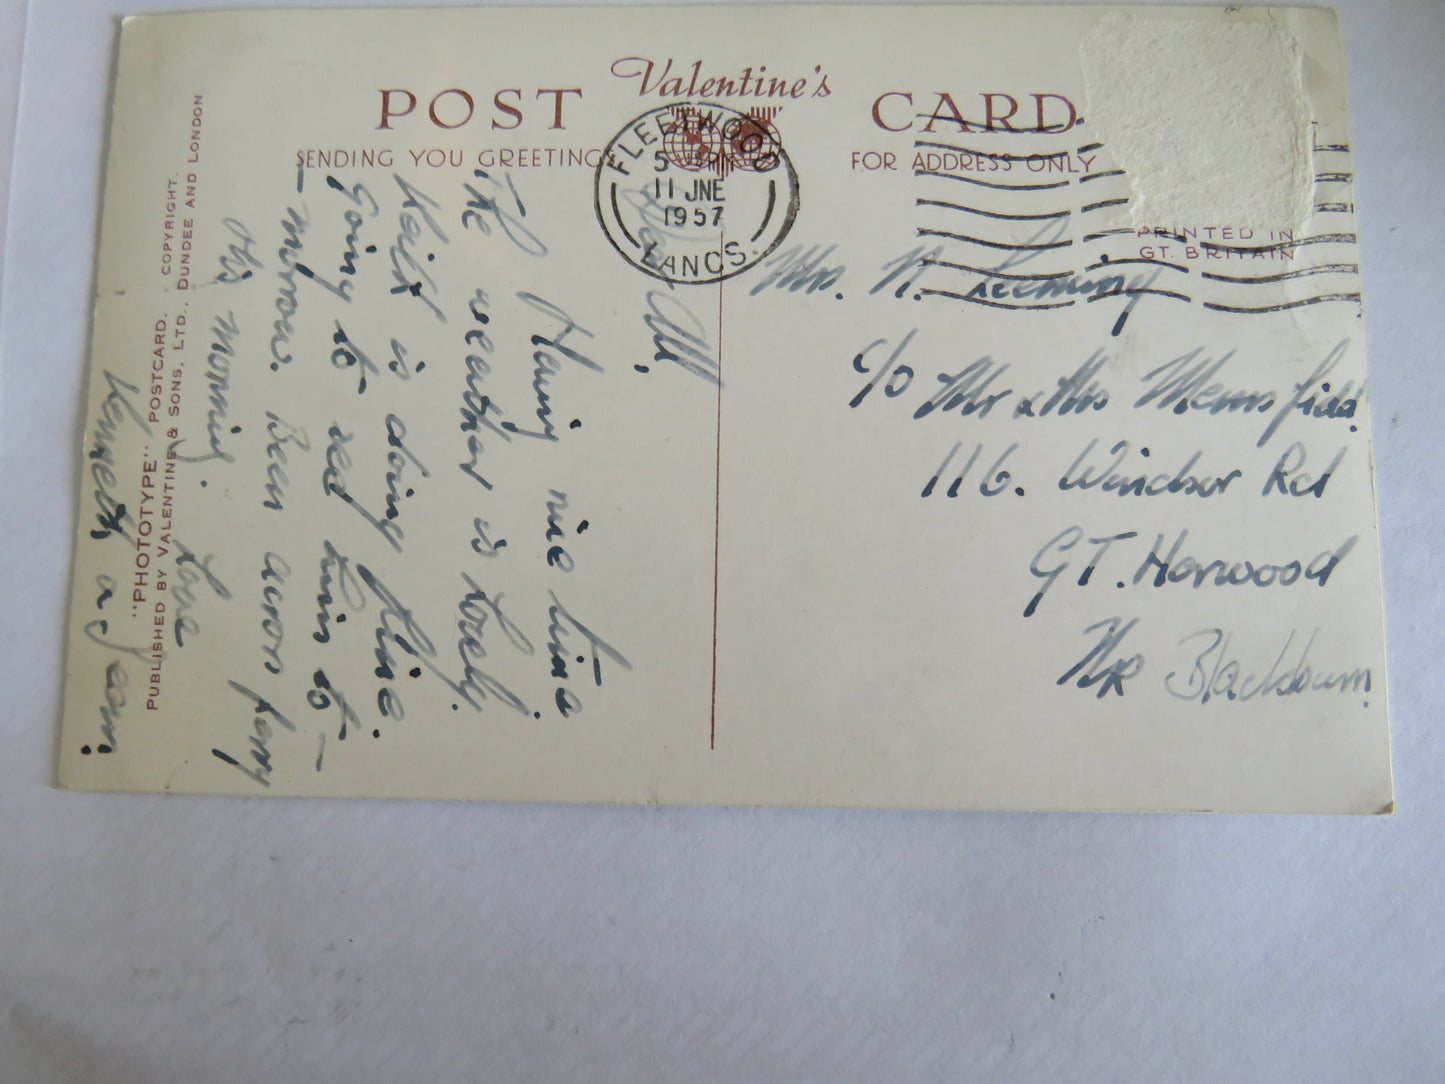 Valentine's
POST CARD
SENDING YOU GREETINGS
FOR ADDRESS ONLY
FLEETWOOD
5
11 JNE
1957
LANCS.
PRINTED IN
GT. BRITAIN
Dear All,
Having nice time
The weather is Lovely.
Keith is doing fine.
Going to see him to-
-morrow. Been across ferry
this morning.
Love
Kenneth & Jean.
Mrs. N. Leeming
c/o Mr & Mrs
116. Windsor Rd
GT. Harwood
Nr Blackburn.
"PHOTOTYPE" POSTCARD. COPYRIGHT.
PUBLISHED BY VALENTINE & SONS, LTD., DUNDEE AND LONDON